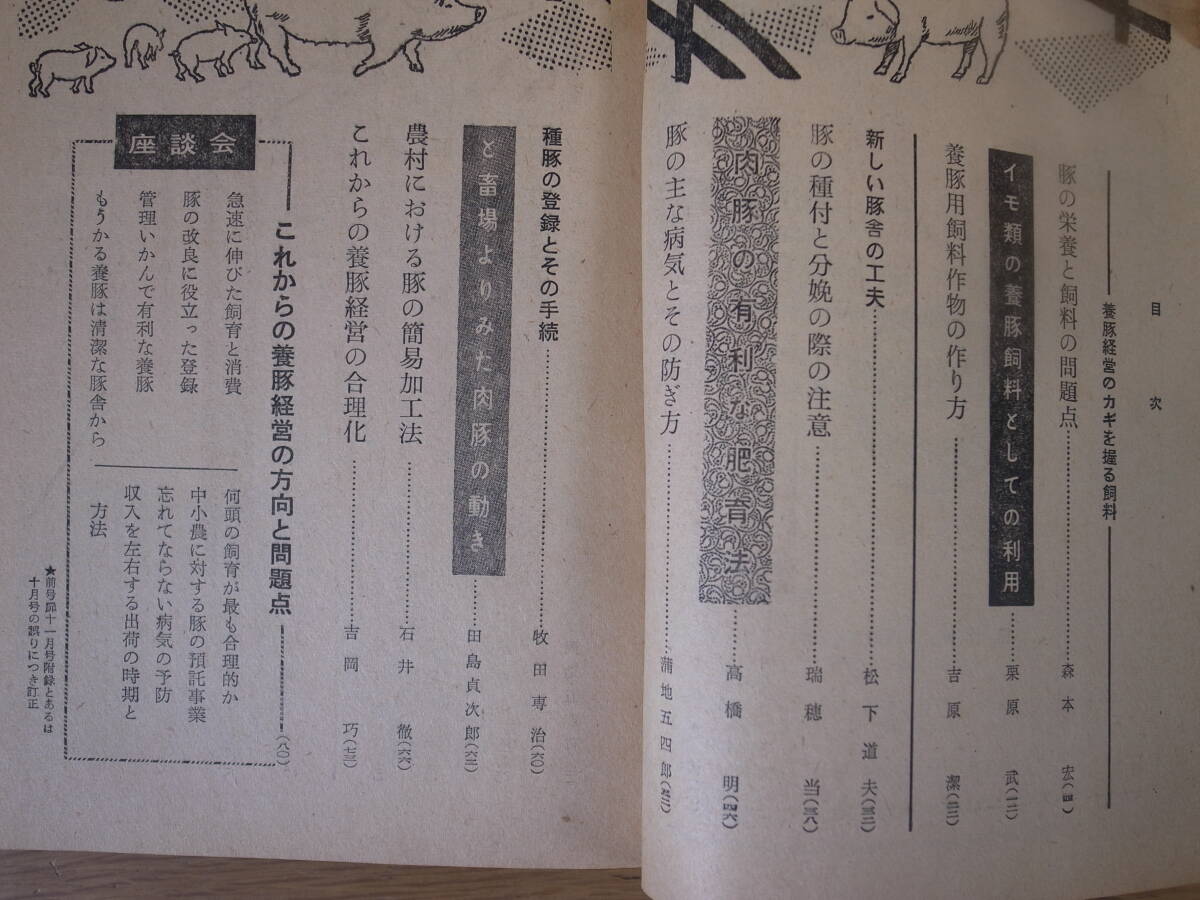 目次
養豚経営のカギを握る飼料
豚の栄養と飼料の問題点……森本 宏(四)
イモ類の養豚飼料としての利用……栗原 武(一二)
養豚用飼料作物の作り方……吉原 潔(二二)
新しい豚舎の工夫……松下道夫(三二)
豚の種付と分娩の際の注意……瑞穂 当(三八)
肉豚の有利な肥育法……高橋 明(四六)
豚の主な病気とその防ぎ方……蒲地五四郎
種豚の登録とその手続……牧田専治(六〇)
と畜場よりみた肉豚の動き……田島貞次郎(六二)
農村における豚の簡易加工法……石井 徹(六六)
これからの養豚経営の合理化……吉岡 巧(七三)
座談会
これからの養豚経営の方向と問題点……(八〇)
急速に伸びた飼育と消費
豚の改良に役立った登録
管理いかんで有利な養豚
もうかる養豚は清潔な豚舎から
何頭の飼育が最も合理的か
中小農に対する豚の預託事業
忘れてならない病気の予防
収入を左右する出荷の時期と
方法
★前号扉十一月号附録とあるは
十月号の誤りにつき訂正